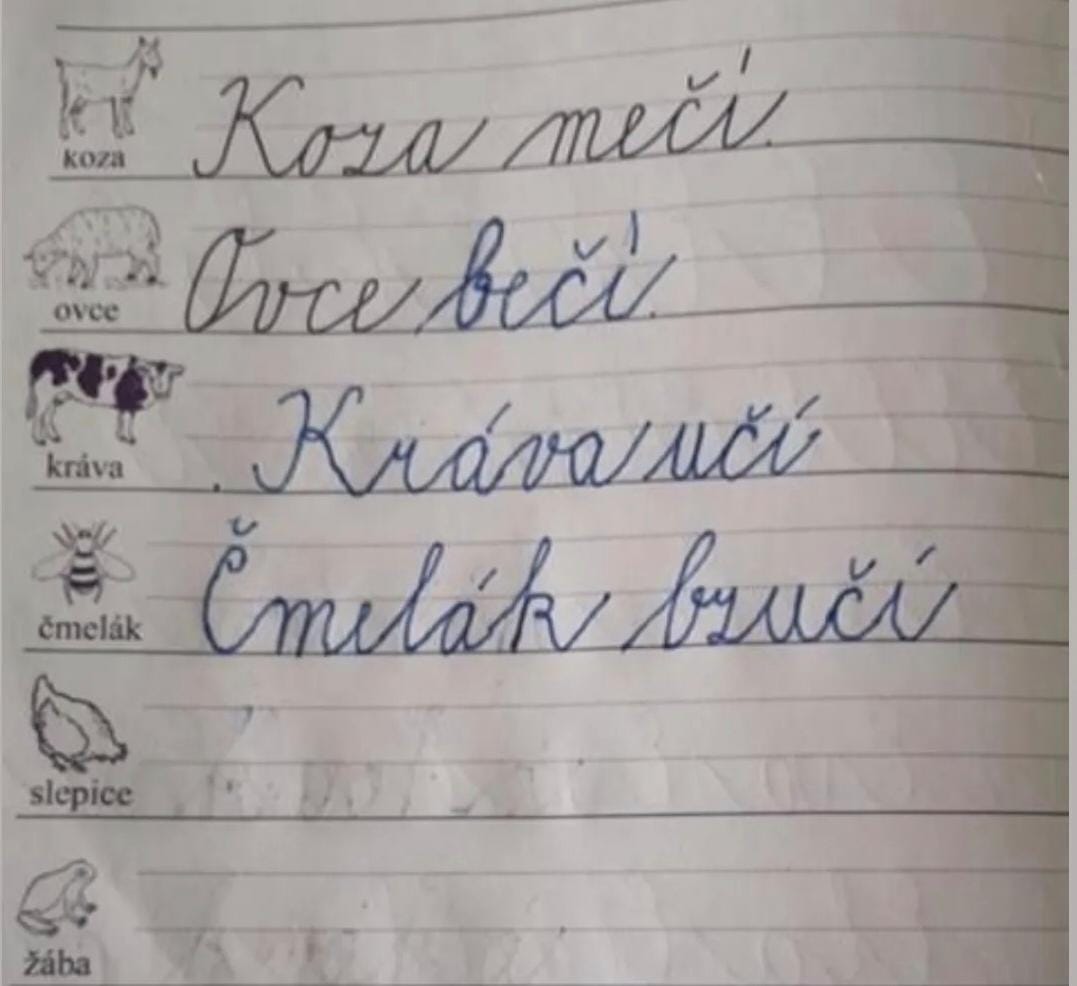 koza Koza mečí.
ovce Ovce bečí.
kráva . Kráva učí
čmelák Čmelák bzučí
slepice
žába